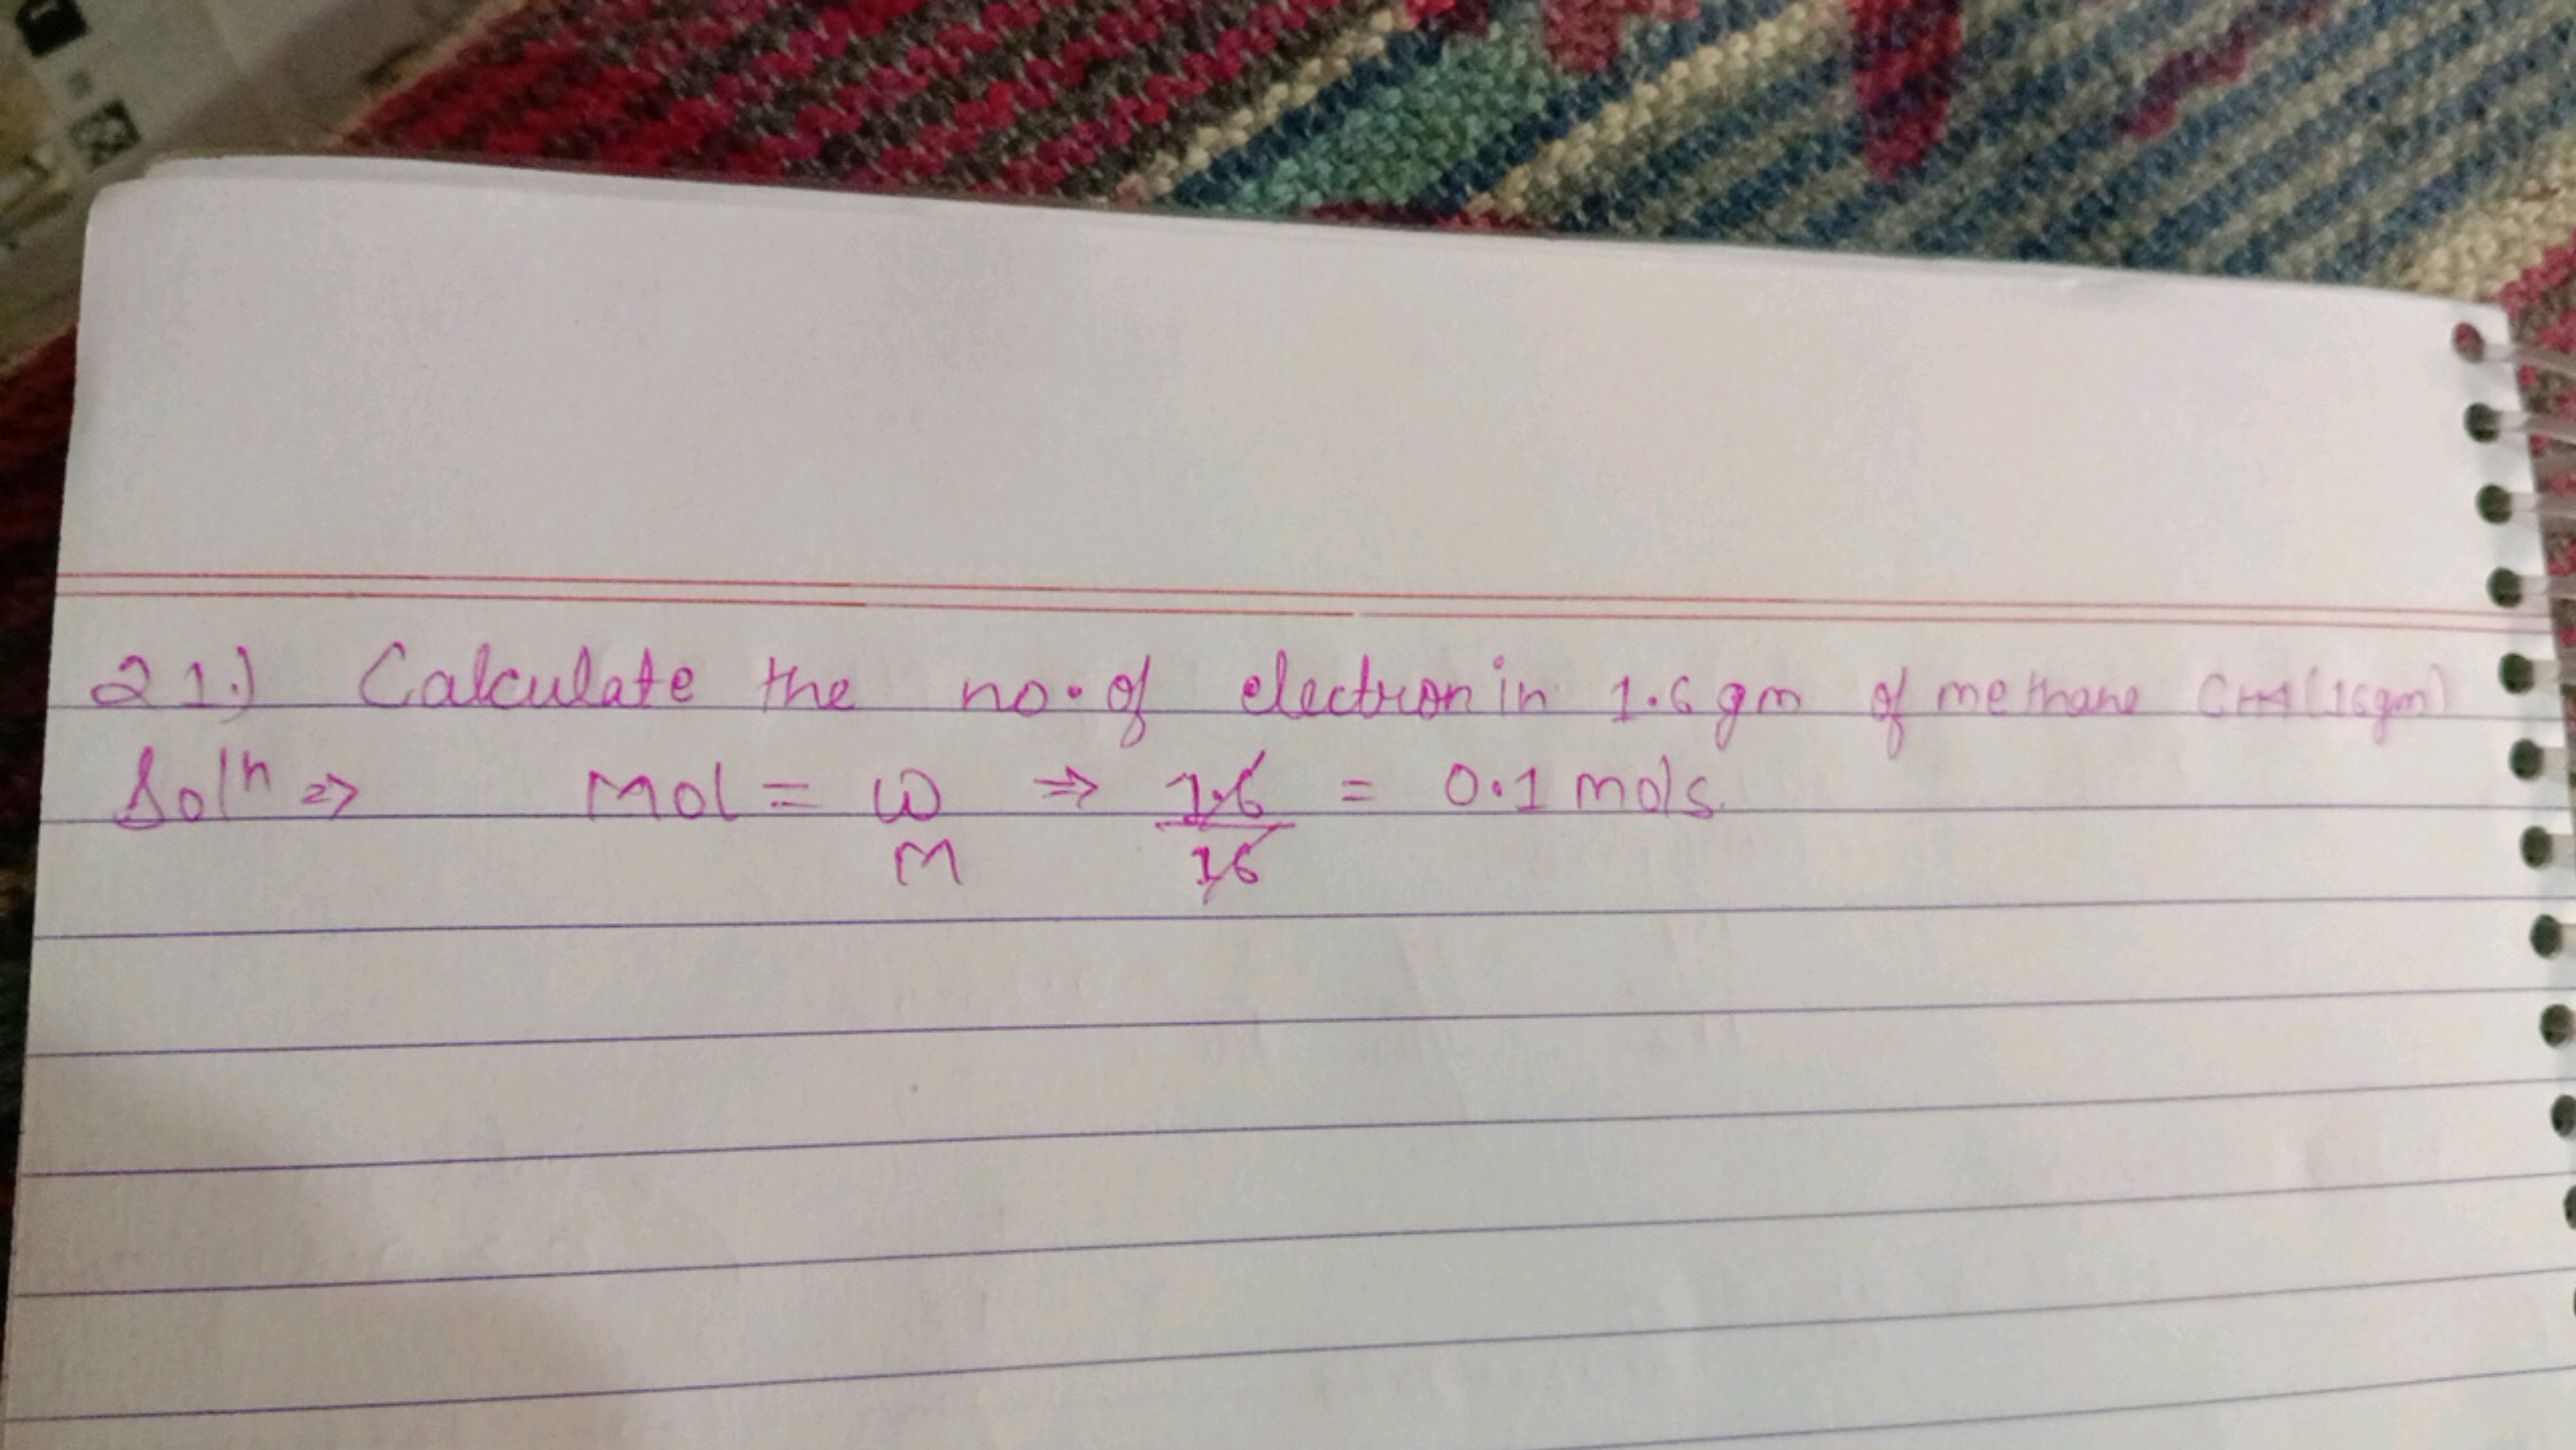 21.) Calculate the no. of electron in 1.6 gm of methane CH4 (16gm)
Solⁿ => Mol = w/M => 1.6/16 = 0.1 mols.